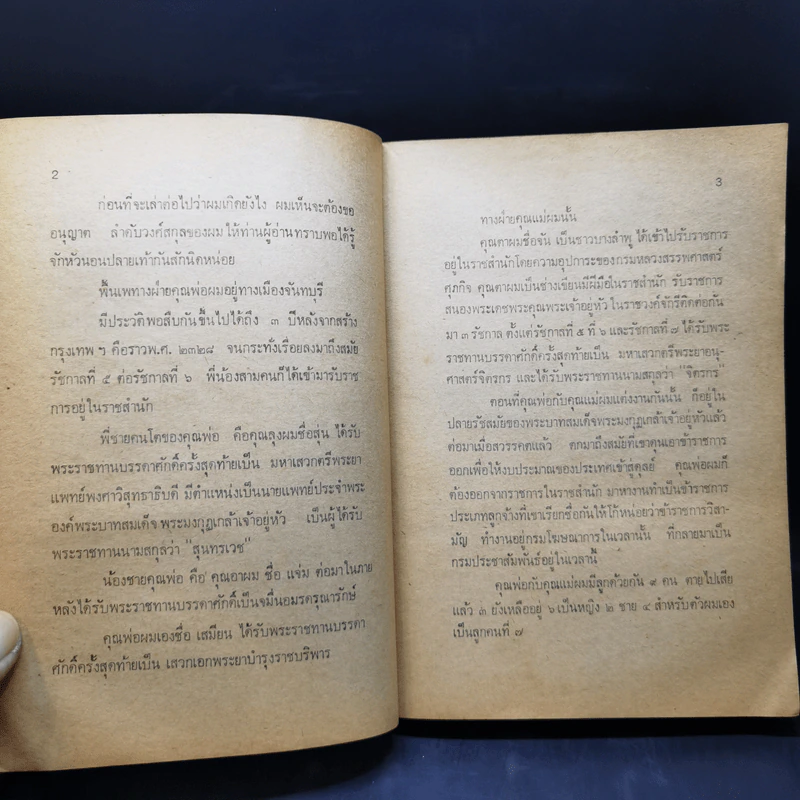 2
ก่อนที่จะเล่าต่อไปว่าผมเกิดยังไง ผมเห็นจะต้องขอ
อนุญาต ลำดับวงศ์สกุลของผมให้ท่านผู้อ่านทราบพอได้รู้
จักหัวนอนปลายเท้ากันสักนิดหน่อย
พื้นเพทางฝ่ายคุณพ่อผมอยู่ทางเมืองจันทบุรี
มีประวัติพอสืบกันขึ้นไปได้ถึง ๓ ปีหลังจากสร้าง
กรุงเทพ ฯ คือราวพ.ศ. ๒๓๒๘ จนกระทั่งเรื่อยลงมาถึงสมัย
รัชกาลที่ ๕ ต่อรัชกาลที่ ๖ พี่น้องสามคนก็ได้เข้ามารับราช
การอยู่ในราชสำนัก
พี่ชายคนโตของคุณพ่อ คือคุณลุงผมชื่อสุ่น ได้รับ
พระราชทานบรรดาศักดิ์ครั้งสุดท้ายเป็น มหาเสวกตรีพระยา
แพทย์พงศาวิสุทธาธิบดี มีตำแหน่งเป็นนายแพทย์ประจำพระ
องค์พระบาทสมเด็จพระมงกุฎเกล้าเจ้าอยู่หัว เป็นผู้ได้รับ
พระราชทานนามสกุลว่า "สุนทรเวช"
น้องชายคุณพ่อ คือ คุณอาผม ชื่อ แจ่ม ต่อมาในภาย
หลังได้รับพระราชทานบรรดาศักดิ์เป็นจมื่นอมรดรุณารักษ์
คุณพ่อผมเองชื่อ เสมียน ได้รับพระราชทานบรรดา
ศักดิ์ครั้งสุดท้ายเป็น เสวกเอกพระยาบำรุงราชบริพาร
3
ทางฝ่ายคุณแม่ผมนั้น
คุณตาผมชื่อจัน เป็นชาวบางลำพู ได้เข้าไปรับราชการ
อยู่ในราชสำนักโดยความอุปการะของกรมหลวงสรรพศาสตร์
ศุภกิจ คุณตาผมเป็นช่างเขียนมีฝีมือในราชสำนัก รับราชการ
สนองพระเดชพระคุณพระเจ้าอยู่หัว ในราชวงค์จักรีติดต่อกัน
มา ๓ รัชกาล ตั้งแต่รัชกาลที่ ๕ ที่ ๖ และรัชกาลที่ ๗ ได้รับพระ
ราชทานบรรดาศักดิ์ครั้งสุดท้ายเป็น มหาเสวกตรีพระยาอนุ-
ศาสตร์จิตรกร และได้รับพระราชทานนามสกุลว่า "จิตรกร"
ตอนที่คุณพ่อกับคุณแม่ผมแต่งงานกันนั้น ก็อยู่ใน
ปลายรัชสมัยของพระบาทสมเด็จพระมงกุฎเกล้าเจ้าอยู่หัวแล้ว
ต่อมาเมื่อสวรรคตแล้ว ตกมาถึงสมัยที่เขาดุนเอาข้าราชการ
ออกเพื่อให้งบประมาณของประเทศเข้าสู่ดุลย์ คุณพ่อผมก็
ต้องออกจากราชการในราชสำนัก มาหางานทำเป็นข้าราชการ
ประเภทลูกจ้างที่เขาเรียกชื่อกันให้โก้หน่อยว่าข้าราชการวิสา-
มัญ ทำงานอยู่กรมโฆษณาการในเวลานั้น ที่กลายมาเป็น
กรมประชาสัมพันธ์อยู่ในเวลานี้
คุณพ่อกับคุณแม่ผมมีลูกด้วยกัน ๙ คน ตายไปเสีย
แล้ว ๓ ยังเหลืออยู่ ๖ เป็นหญิง ๒ ชาย ๔ สำหรับตัวผมเอง
เป็นลูกคนที่ ๗